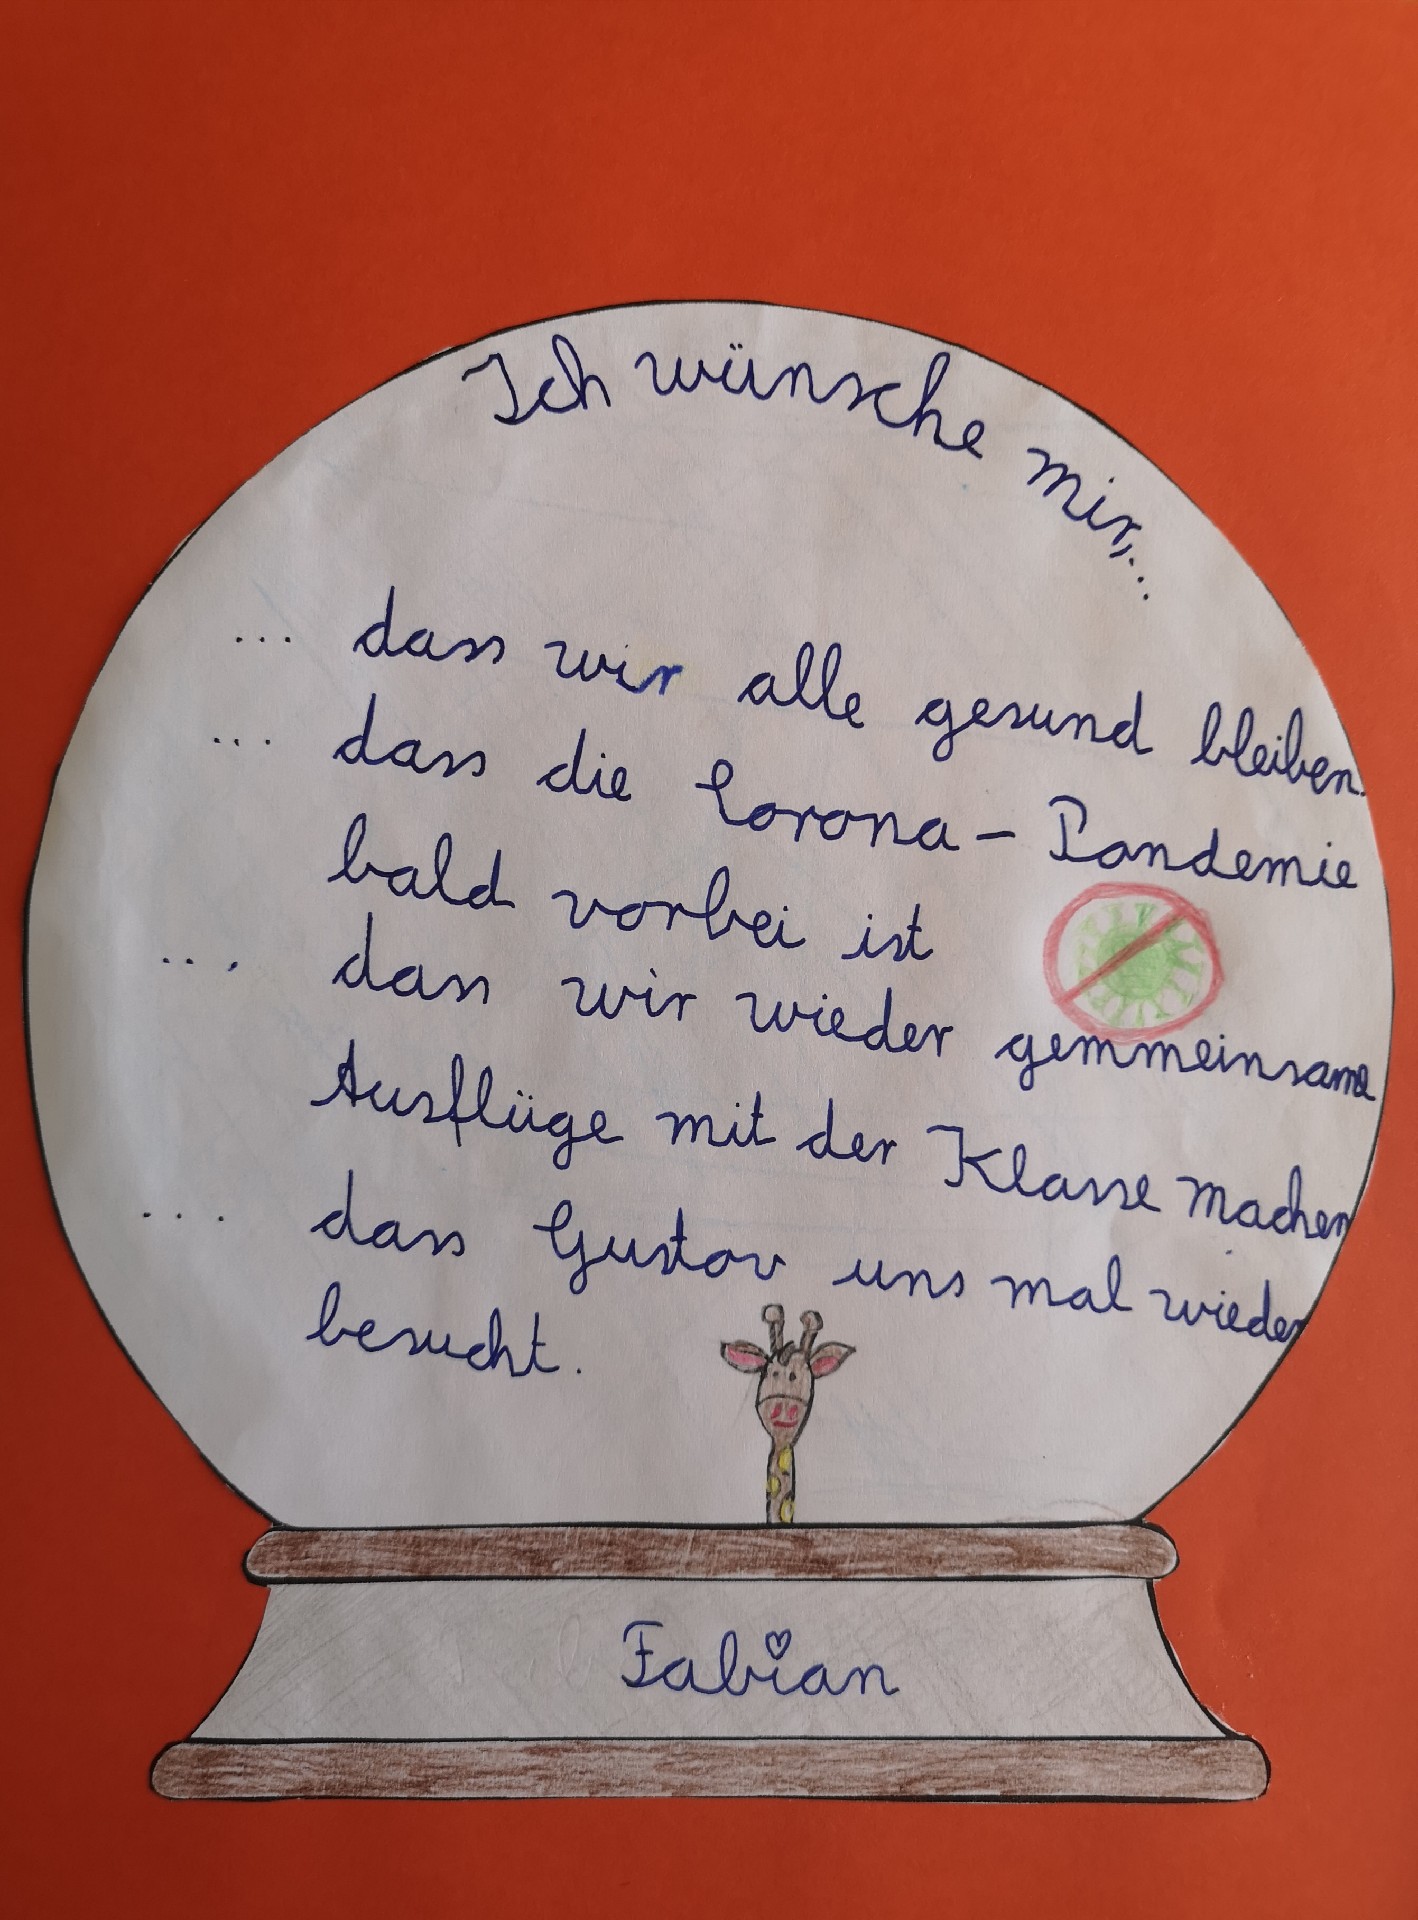 Ich wünsche mir,...
... dass wir alle gesund bleiben.
... dass die Corona - Pandemie
bald vorbei ist
... dass wir wieder gemmeinsame
Ausflüge mit der Klasse machen
... dass Gustav uns mal wieder
besucht.
Fabian